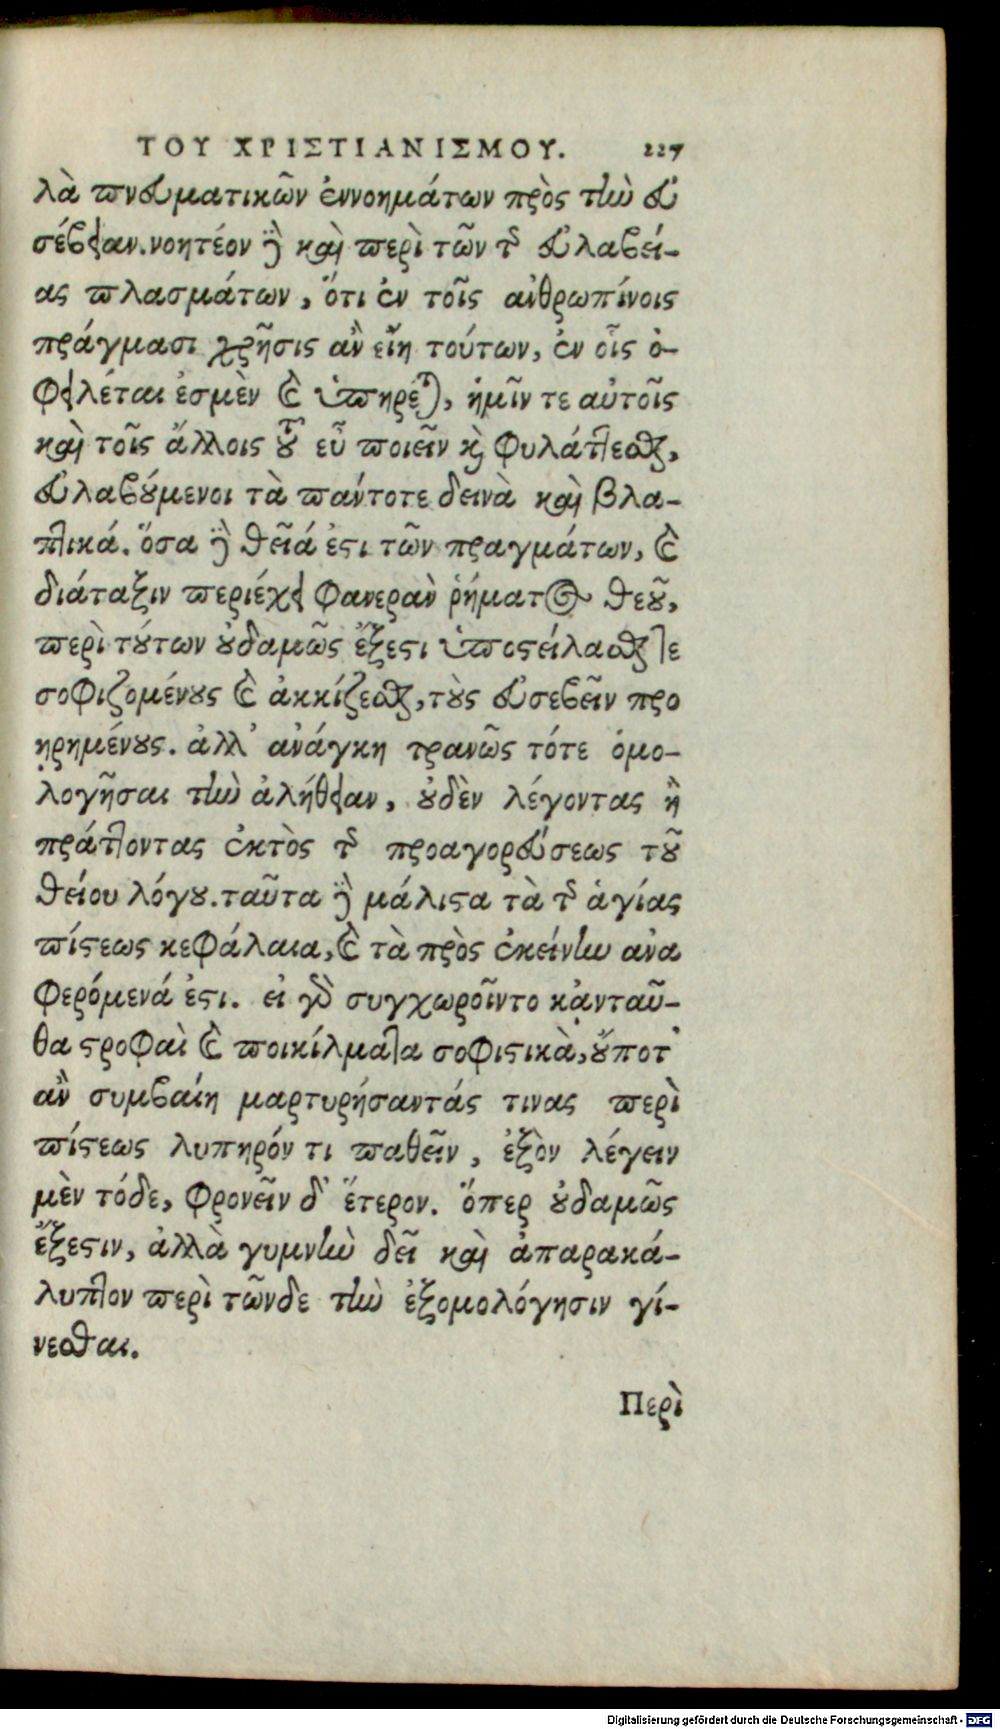 ΤΟΥ ΧΡΙΣΤΙΑΝΙΣΜΟΥ. 227
λὰ πνευματικῶν ἐννοημάτων πρὸς τὴν εὐ
σέβειαν. νοητέον δὲ καὶ περὶ τῶν τῆς εὐλαβεί-
ας πλασμάτων, ὅτι ἐν τοῖς ἀνθρωπίνοις
πράγμασι χρῆσις ἂν εἴη τούτων, ἐν οἷς ὀ-
φειλέται ἐσμὲν καὶ ὑπηρέται, ἡμῖν τε αὐτοῖς
καὶ τοῖς ἄλλοις τοῦ εὖ ποιεῖν καὶ φυλάττεσθαι,
εὐλαβούμενοι τὰ πάντοτε δεινὰ καὶ βλα-
πτικά. ὅσα δὲ θεῖά ἐστι τῶν πραγμάτων, καὶ
διάταξιν περιέχει φανερὰν ῥήματος θεοῦ,
περὶ τούτων οὐδαμῶς ἔξεστι ὑποστείλασθαί τε
σοφιζομένους καὶ ἀκκίζεσθαι, τοὺς εὐσεβεῖν προ
ῃρημένους. ἀλλ' ἀνάγκη τρανῶς τότε ὁμο-
λογῆσαι τὴν ἀλήθειαν, οὐδὲν λέγοντας ἢ
πράττοντας ἐκτὸς τῆς προαγορεύσεως τοῦ
θείου λόγου. ταῦτα δὲ μάλιστα τὰ τῆς ἁγίας
πίστεως κεφάλαια, καὶ τὰ πρὸς ἐκείνην ἀνα
φερόμενά ἐστι. εἰ γὰρ συγχωροῖντο κᾀνταῦ-
θα στροφαὶ καὶ ποικίλματα σοφιστικὰ, οὔποτ'
ἂν συμβαίη μαρτυρήσαντάς τινας περὶ
πίστεως λυπηρόν τι παθεῖν, ἐξὸν λέγειν
μὲν τόδε, φρονεῖν δ' ἕτερον. ὅπερ οὐδαμῶς
ἔξεστιν, ἀλλὰ γυμνὴν δεῖ καὶ ἀπαρακά-
λυπτον περὶ τῶνδε τὴν ἐξομολόγησιν γί-
νεσθαι.
Περὶ
Digitalisierung gefördert durch die Deutsche Forschungsgemeinschaft - DFG